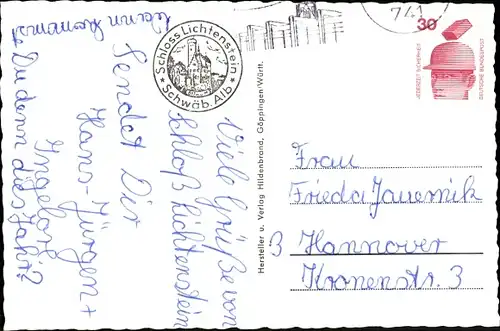 Viele Grüße von
Schloß Lichtenstein
sendet Dir
Hans-Jürgen +
Ingelore
Wann kommst
Du denn dies Jahr?
Schloss Lichtenstein
* Schwäb. Alb *
Hersteller u. Verlag Hildenbrand, Göppingen/Württ.
741
30
JEDERZEIT SICHERHEIT
DEUTSCHE BUNDESPOST
Frau
Frieda Jauernik
3 Hannover
Kronenstr. 3